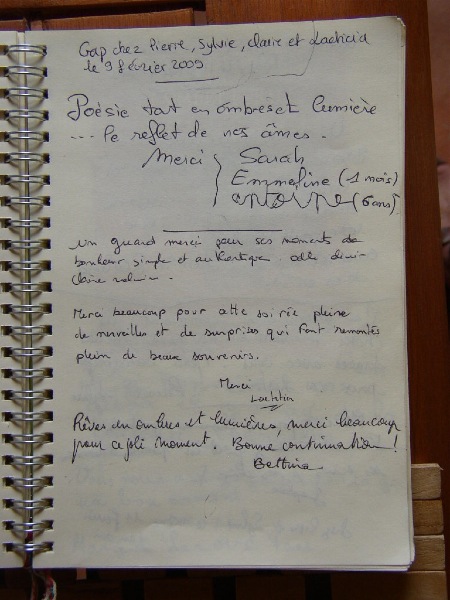 Gap chez Pierre, Sylvie, Claire et Laeticia
le 9 février 2009
Poésie tout en ombres et lumière
... le reflet de nos âmes.
Merci Sarah
Emmeline (1 mois)
antoine (6 ans)
un grand merci pour ses moments de
bonheur simple et authentique.
Claire
Merci beaucoup pour cette soirée pleine
de merveilles et de surprises qui font remontés
plein de beaux souvenirs.
Merci
Laetitia
Rêves en ombres et lumières, merci beaucoup
pour ce joli moment. Bonne continuation !
Bettina